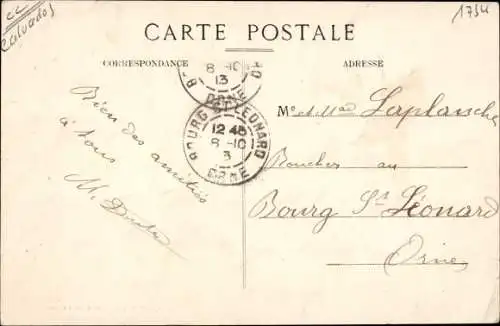 CC
Calvados
1754
CARTE POSTALE
CORRESPONDANCE
ADRESSE
8 -10
13
ORNE
BOURG ST LEONARD
12 45
8 -10
13
ORNE
Bien des amitiés
à tous
M.
Mr et Mad Laplanche
Boucher au
Bourg St Léonard
Orne